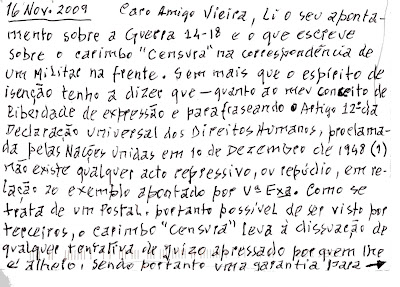 16 Nov. 2009 Caro Amigo Vieira, Li o seu aponta-
mento sobre a Guerra 14-18 e o que escreve
sobre o carimbo "Censura" na correspondência de
um Militar na frente. Sem mais que o espírito de
isenção tenho a dizer que — quanto ao meu conceito de
Liberdade de expressão e parafraseando o Artigo 12º da
Declaração Universal dos Direitos Humanos, proclama-
da pelas Nações Unidas em 10 de Dezembro de 1948 (?)
não existe qualquer acto repressivo, ou repúdio, em re-
lação ao exemplo apontado por Vª Exa. Como se
trata de um Postal, portanto possível de ser visto por
terceiros, o carimbo "Censura" leva à dissuação de
qualquer tentativa de juízo apressado por quem lhe
é alheio, sendo portanto uma garantia para →